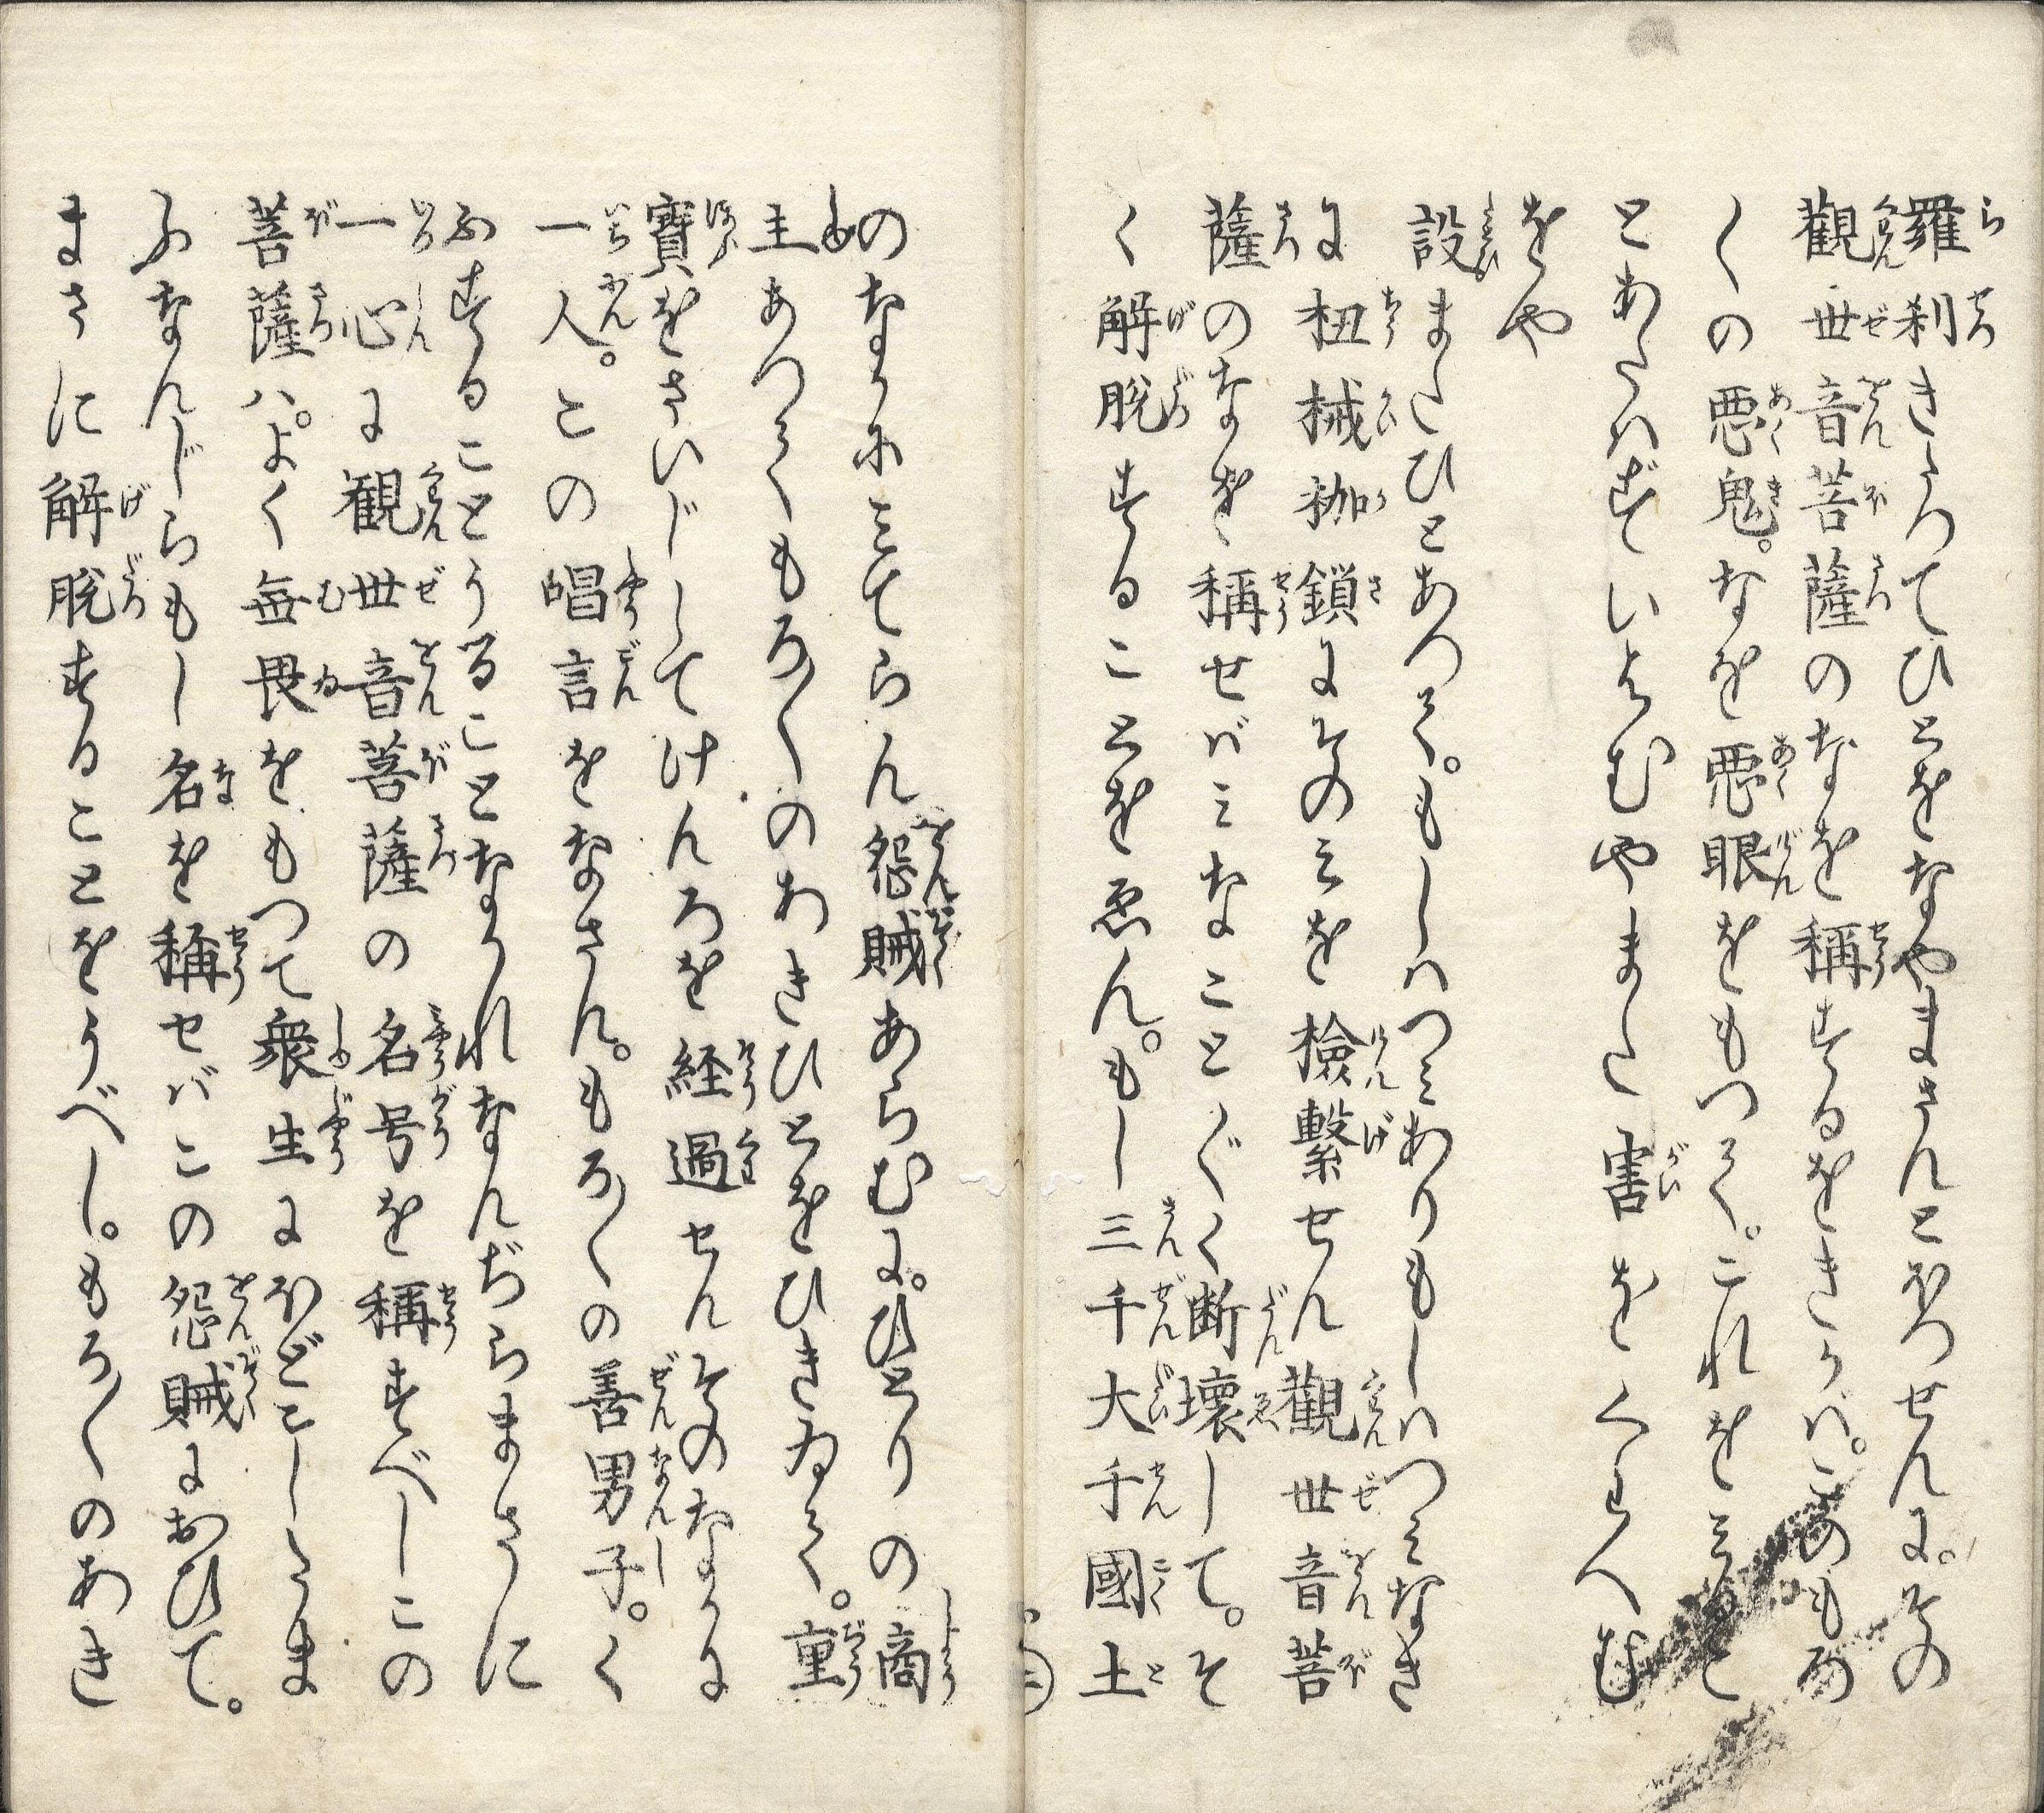 羅刹きたつてひとをなやまさんとほつせんに。その
觀世音菩薩のなを稱するをきかバ。このもろ
〱の悪鬼。なを悪眼をもつて。これをみること
とあたハずいはむやまた害をくはへむ
をや
設またひとあつて。もしハつみありもしハつみなき
に杻械枷鎖にそのみを撿繫せん觀世音菩
薩のなを稱せバみなこと〲く断壞して。そ
く解脱することをゑん。もし三千大千國土
のなかにみてらん怨賊あらむに。ひとりの商
主あつてもろ〱のあきひとをひきゐて。重
寳をさいじしてけんろを経過せんそのなかに
一人。この唱言をなさん。もろ〱の善男子。く
ふすることうることなかれなんぢらまさに
一心に観世音菩薩の名号を稱すべしこの
菩薩ハ。よく無畏をもつて衆生にほどこしたま
ふなんじらもし名を稱セバこの怨賊におひて。
まさに解脱することをうべし。もろ〱のあき